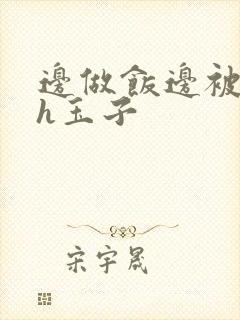 邊做飯邊被
h玉子
宋宇晟